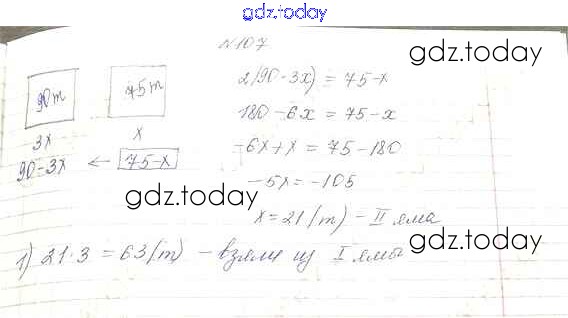 gdz.today
№107
90т 75т
2(90-3x) = 75-x
gdz.today
180-6x = 75-x
3x x
-6x+x = 75-180
90-3x ← 75-x
-5x=-105
gdz.today
x=21(т) - II яма
gdz.today
1) 21·3 = 63(т) - взяли из I ямы